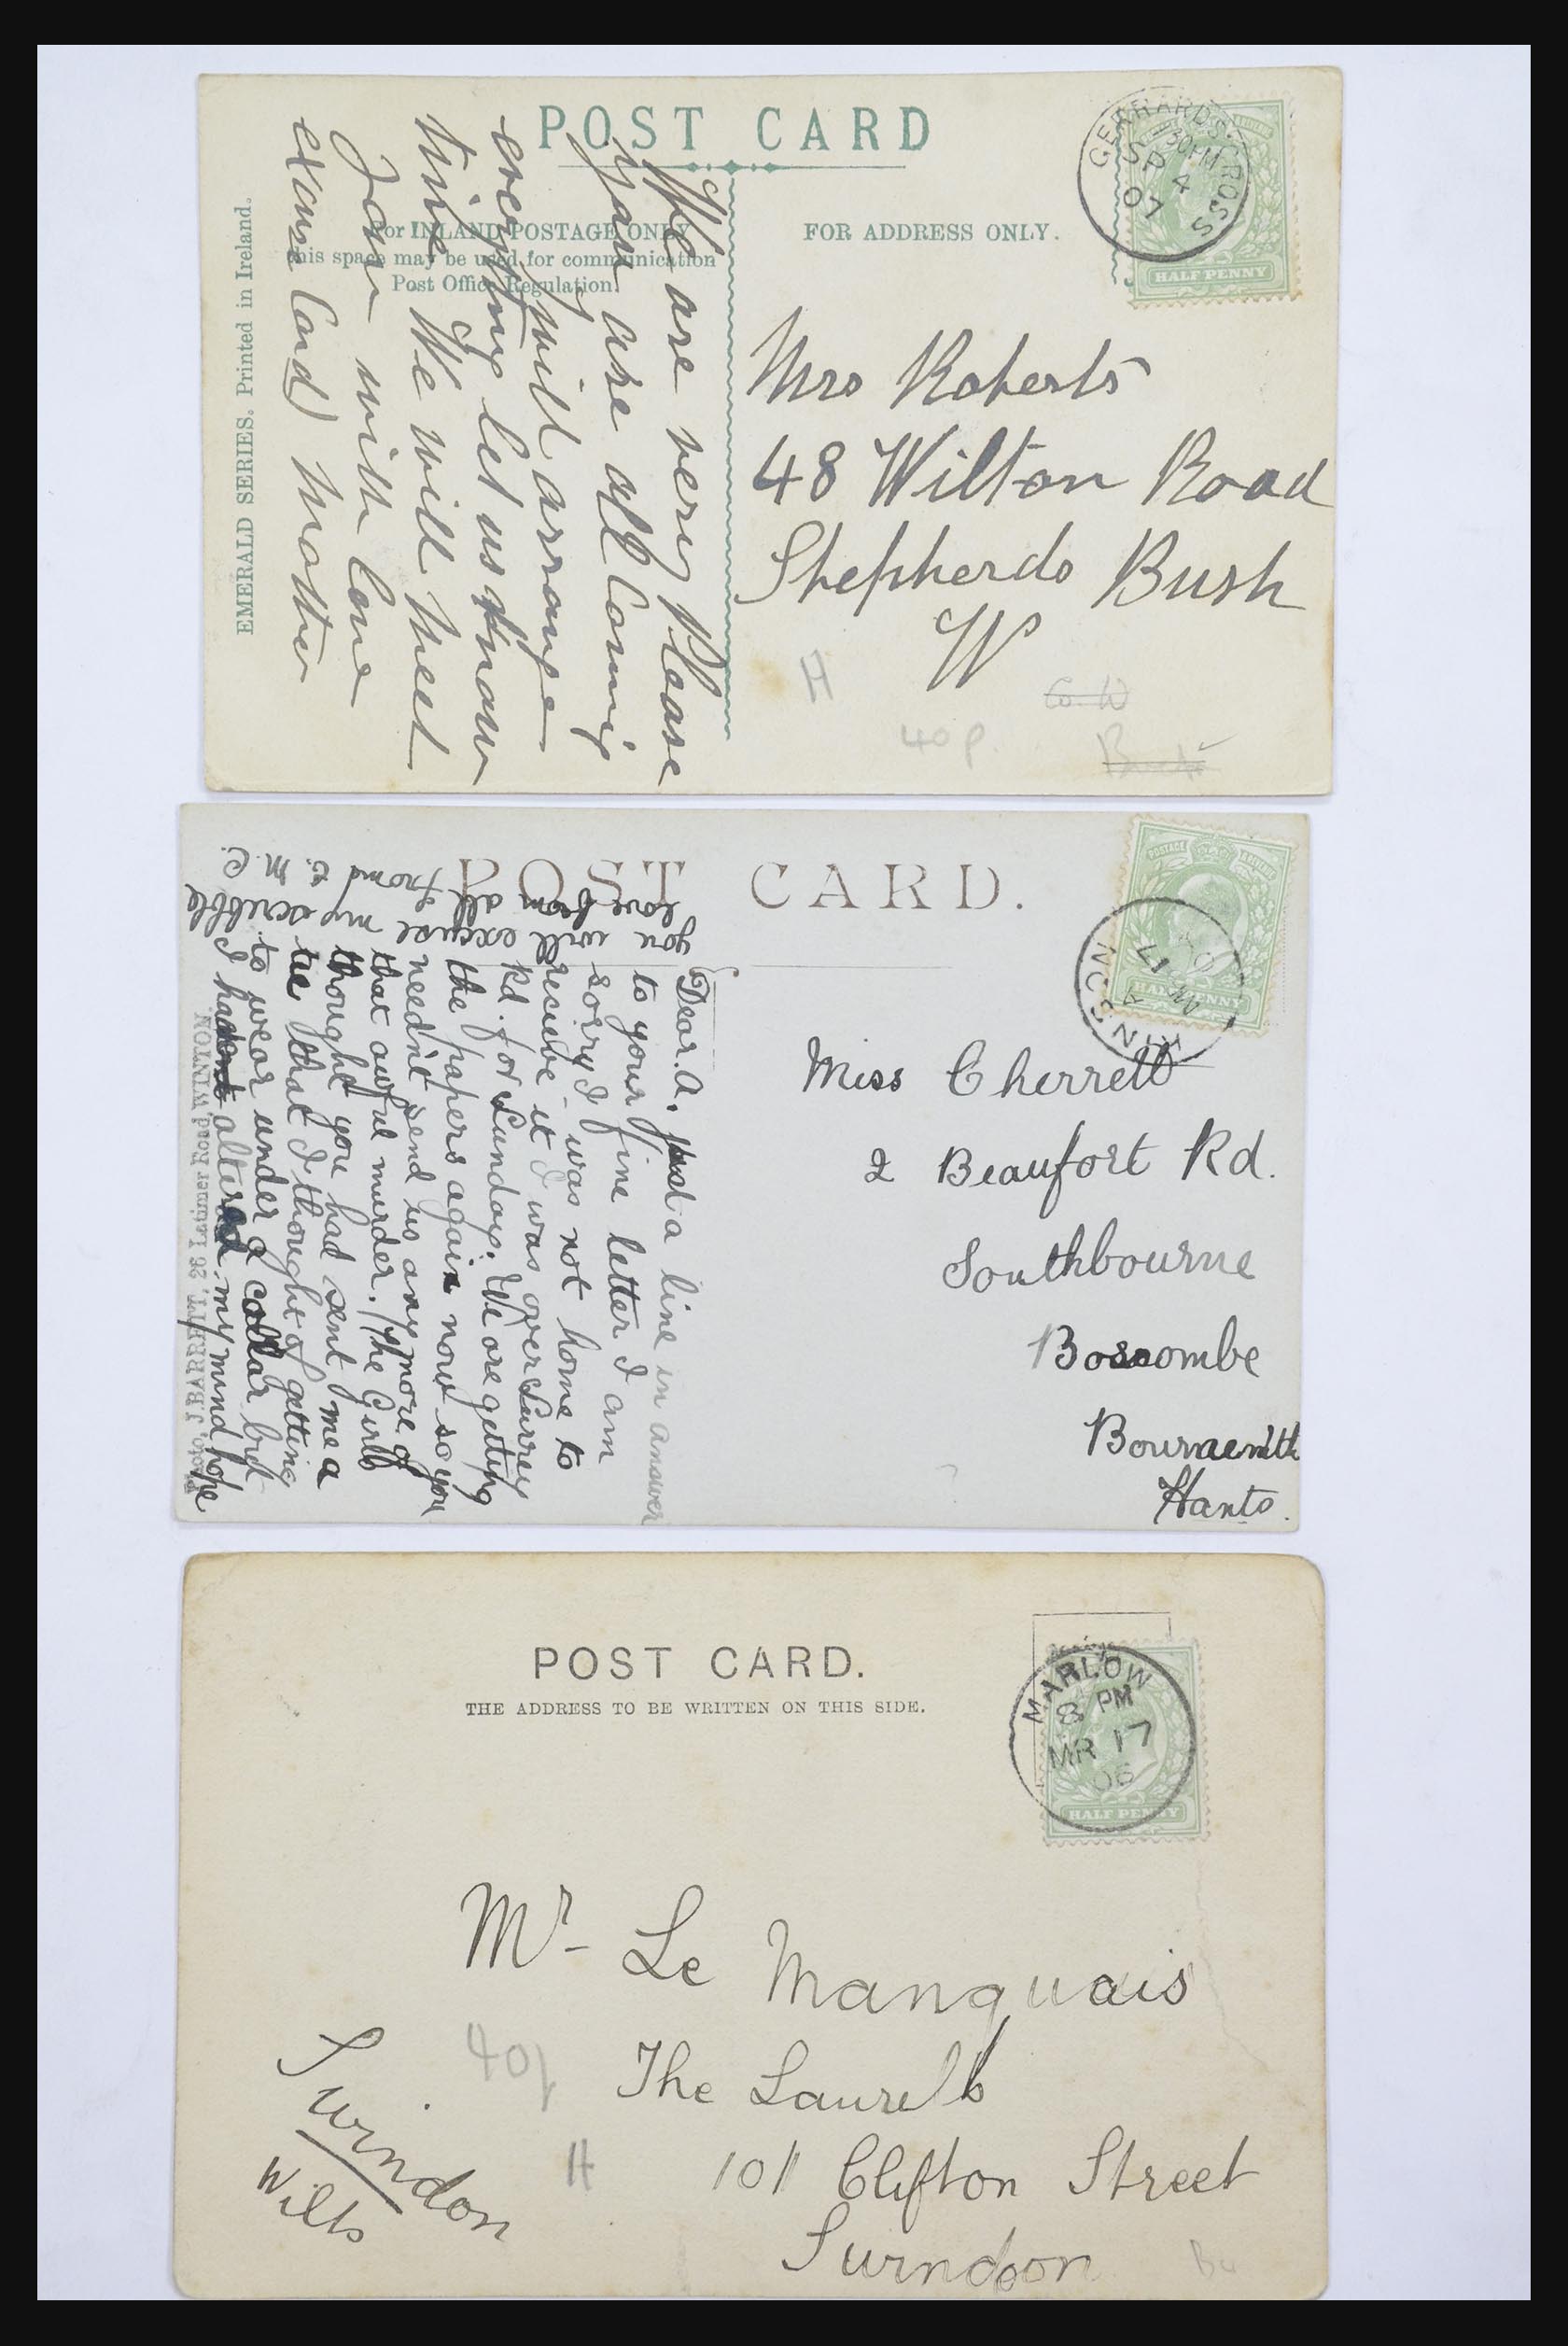 POST CARD
For INLAND POSTAGE ONLY
this space may be used for communication
Post Office Regulation.
FOR ADDRESS ONLY.
EMERALD SERIES. Printed in Ireland.
GERRARDS CROSS
30PM
SP 4
07
HALF PENNY
We are very Please
you are all Coming
every will arrange
let us know
time We will meet
with love
excuse Card Mother
Mrs Roberts
48 Wilton Road
Shepherds Bush
W
H
40p.
Co. W
POST CARD.
POSTAGE
HALF PENNY
AM
17
Dear A. just a line in answer
to your fine letter I am
sorry I was not home to
recieve it I was over Surrey
Rd. for Sunday. We are getting
the papers again now so you
needn't send us any more of
that awful murder. The Girls
thought you had sent me a
tie that I thought of getting
to wear under a collar but
I had altered my mind hope
you will excuse my scribble
love from all from E. M. C.
Photo, J. BARRETT, 26 Latimer Road, WINTON
Miss Cherrett
2 Beaufort Rd.
Southbourne
Boscombe
Bournemth
Hants.
POST CARD.
THE ADDRESS TO BE WRITTEN ON THIS SIDE.
MARLOW
8 PM
MR 17
06
HALF PENNY
Mr Le Manquais
The Laurels
101 Clifton Street
Swindon
Swindon
Wilts
40p
H
Bu